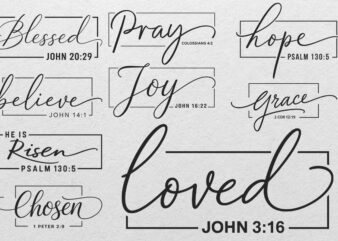 Blessed
JOHN 20:29
Pray
COLOSSIANS 4:2
hope
PSALM 130:5
believe
JOHN 14:1
Joy
JOHN 16:22
Grace
2 COR 12:19
HE IS
Risen
PSALM 130:5
Chosen
1 PETER 2:9
loved
JOHN 3:16